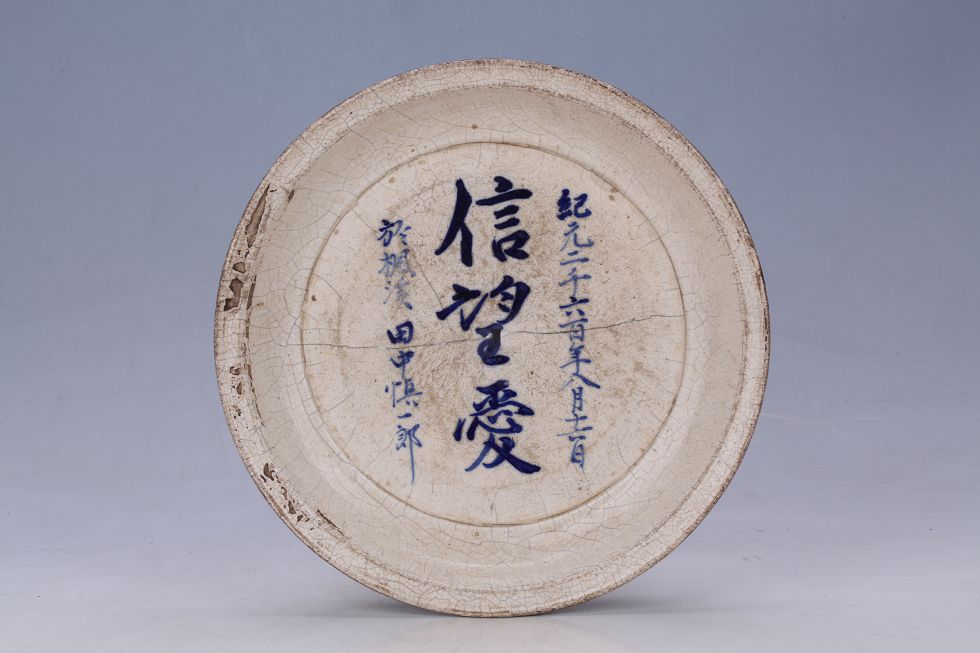 紀元二千六百年八月十二日
信望愛
於楓溪 田中慎一郎